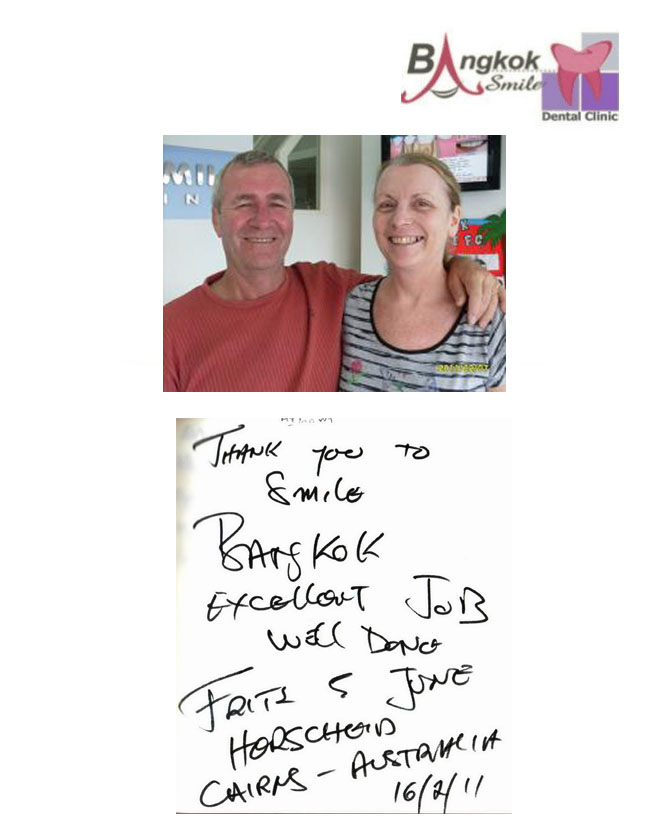 BAngkok
Smile
Dental Clinic
MIL
I N
K
E F C
THANK you TO
SmiLe
BANgKOK
EXCELLENT JOB
WELL DONE
FRITZ & JUNE
HORSCHEID
CAIRNS - AUSTRALIA
16/2/11